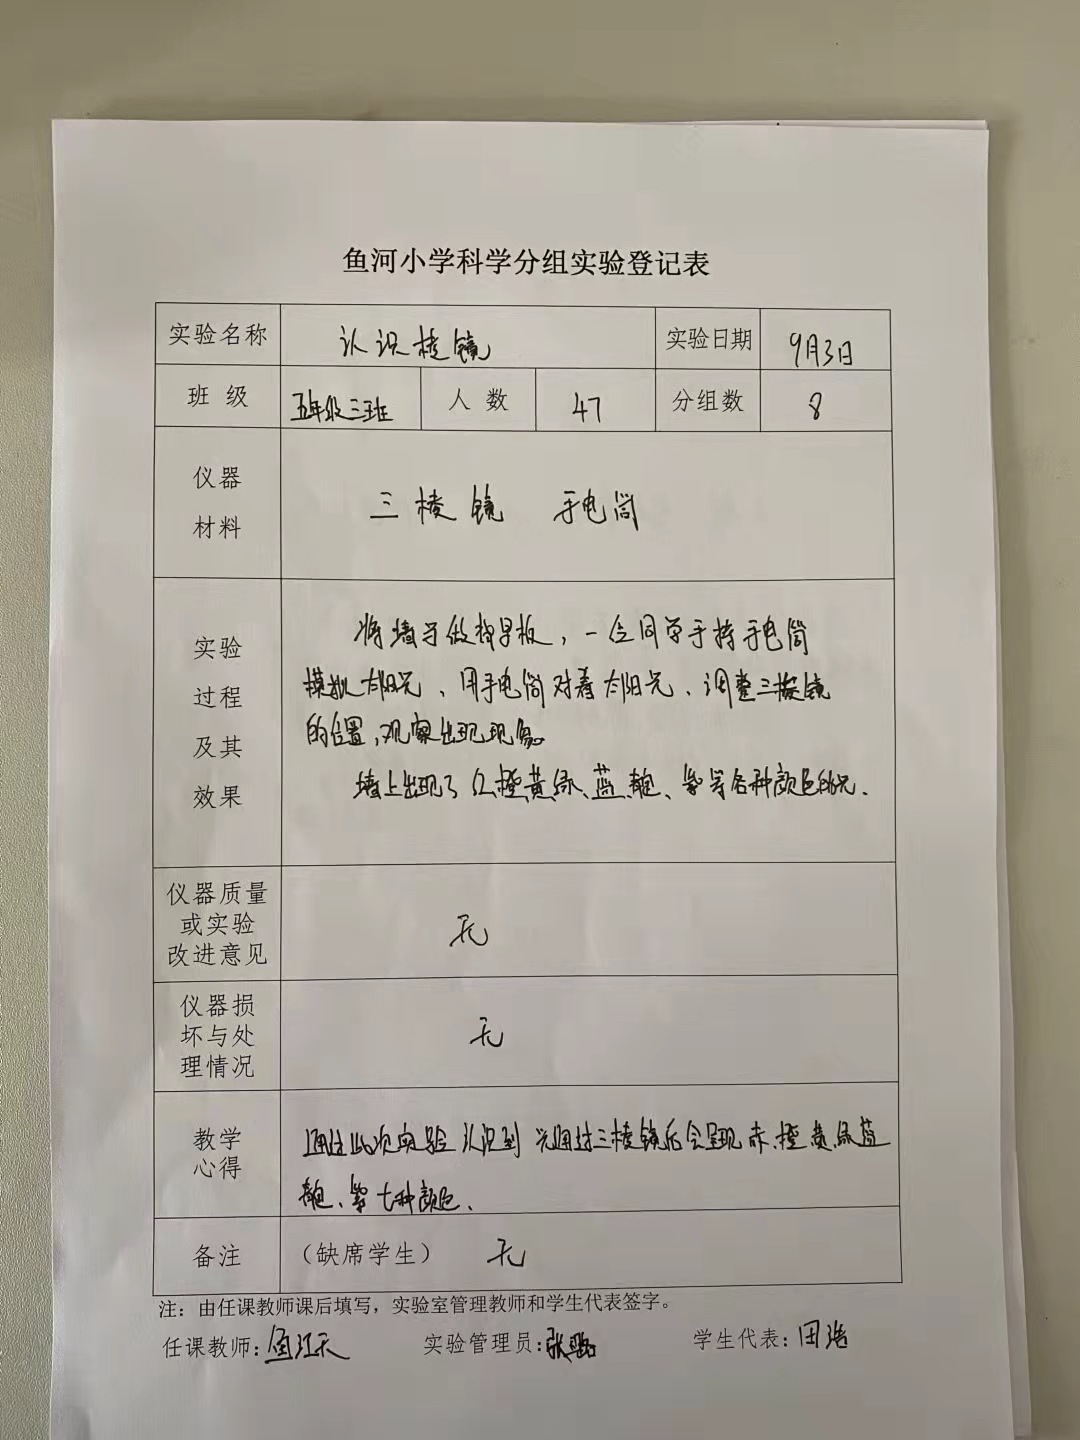 鱼河小学科学分组实验登记表
实验名称 认识棱镜 实验日期 9月3日
班 级 五年级三班 人 数 47 分组数 8
仪器
材料
三棱镜 手电筒
实验
过程
及其
效果
将墙于做指导板，一位同学手持手电筒
模拟太阳光、用手电筒对着太阳光、调整三棱镜
的位置，观察出现现象。
墙上出现了红橙、黄、绿、蓝、靛、紫等各种颜色的光.
仪器质量
或实验
改进意见
无
仪器损
坏与处
理情况
无
教学
心得
通过此次实验认识到 光通过三棱镜后会呈现 赤、橙、黄、绿、蓝
靛、紫 七种颜色.
备注 （缺席学生） 无
注：由任课教师课后填写，实验室管理教师和学生代表签字。
任课教师: 实验管理员: 张 学生代表: 田浩